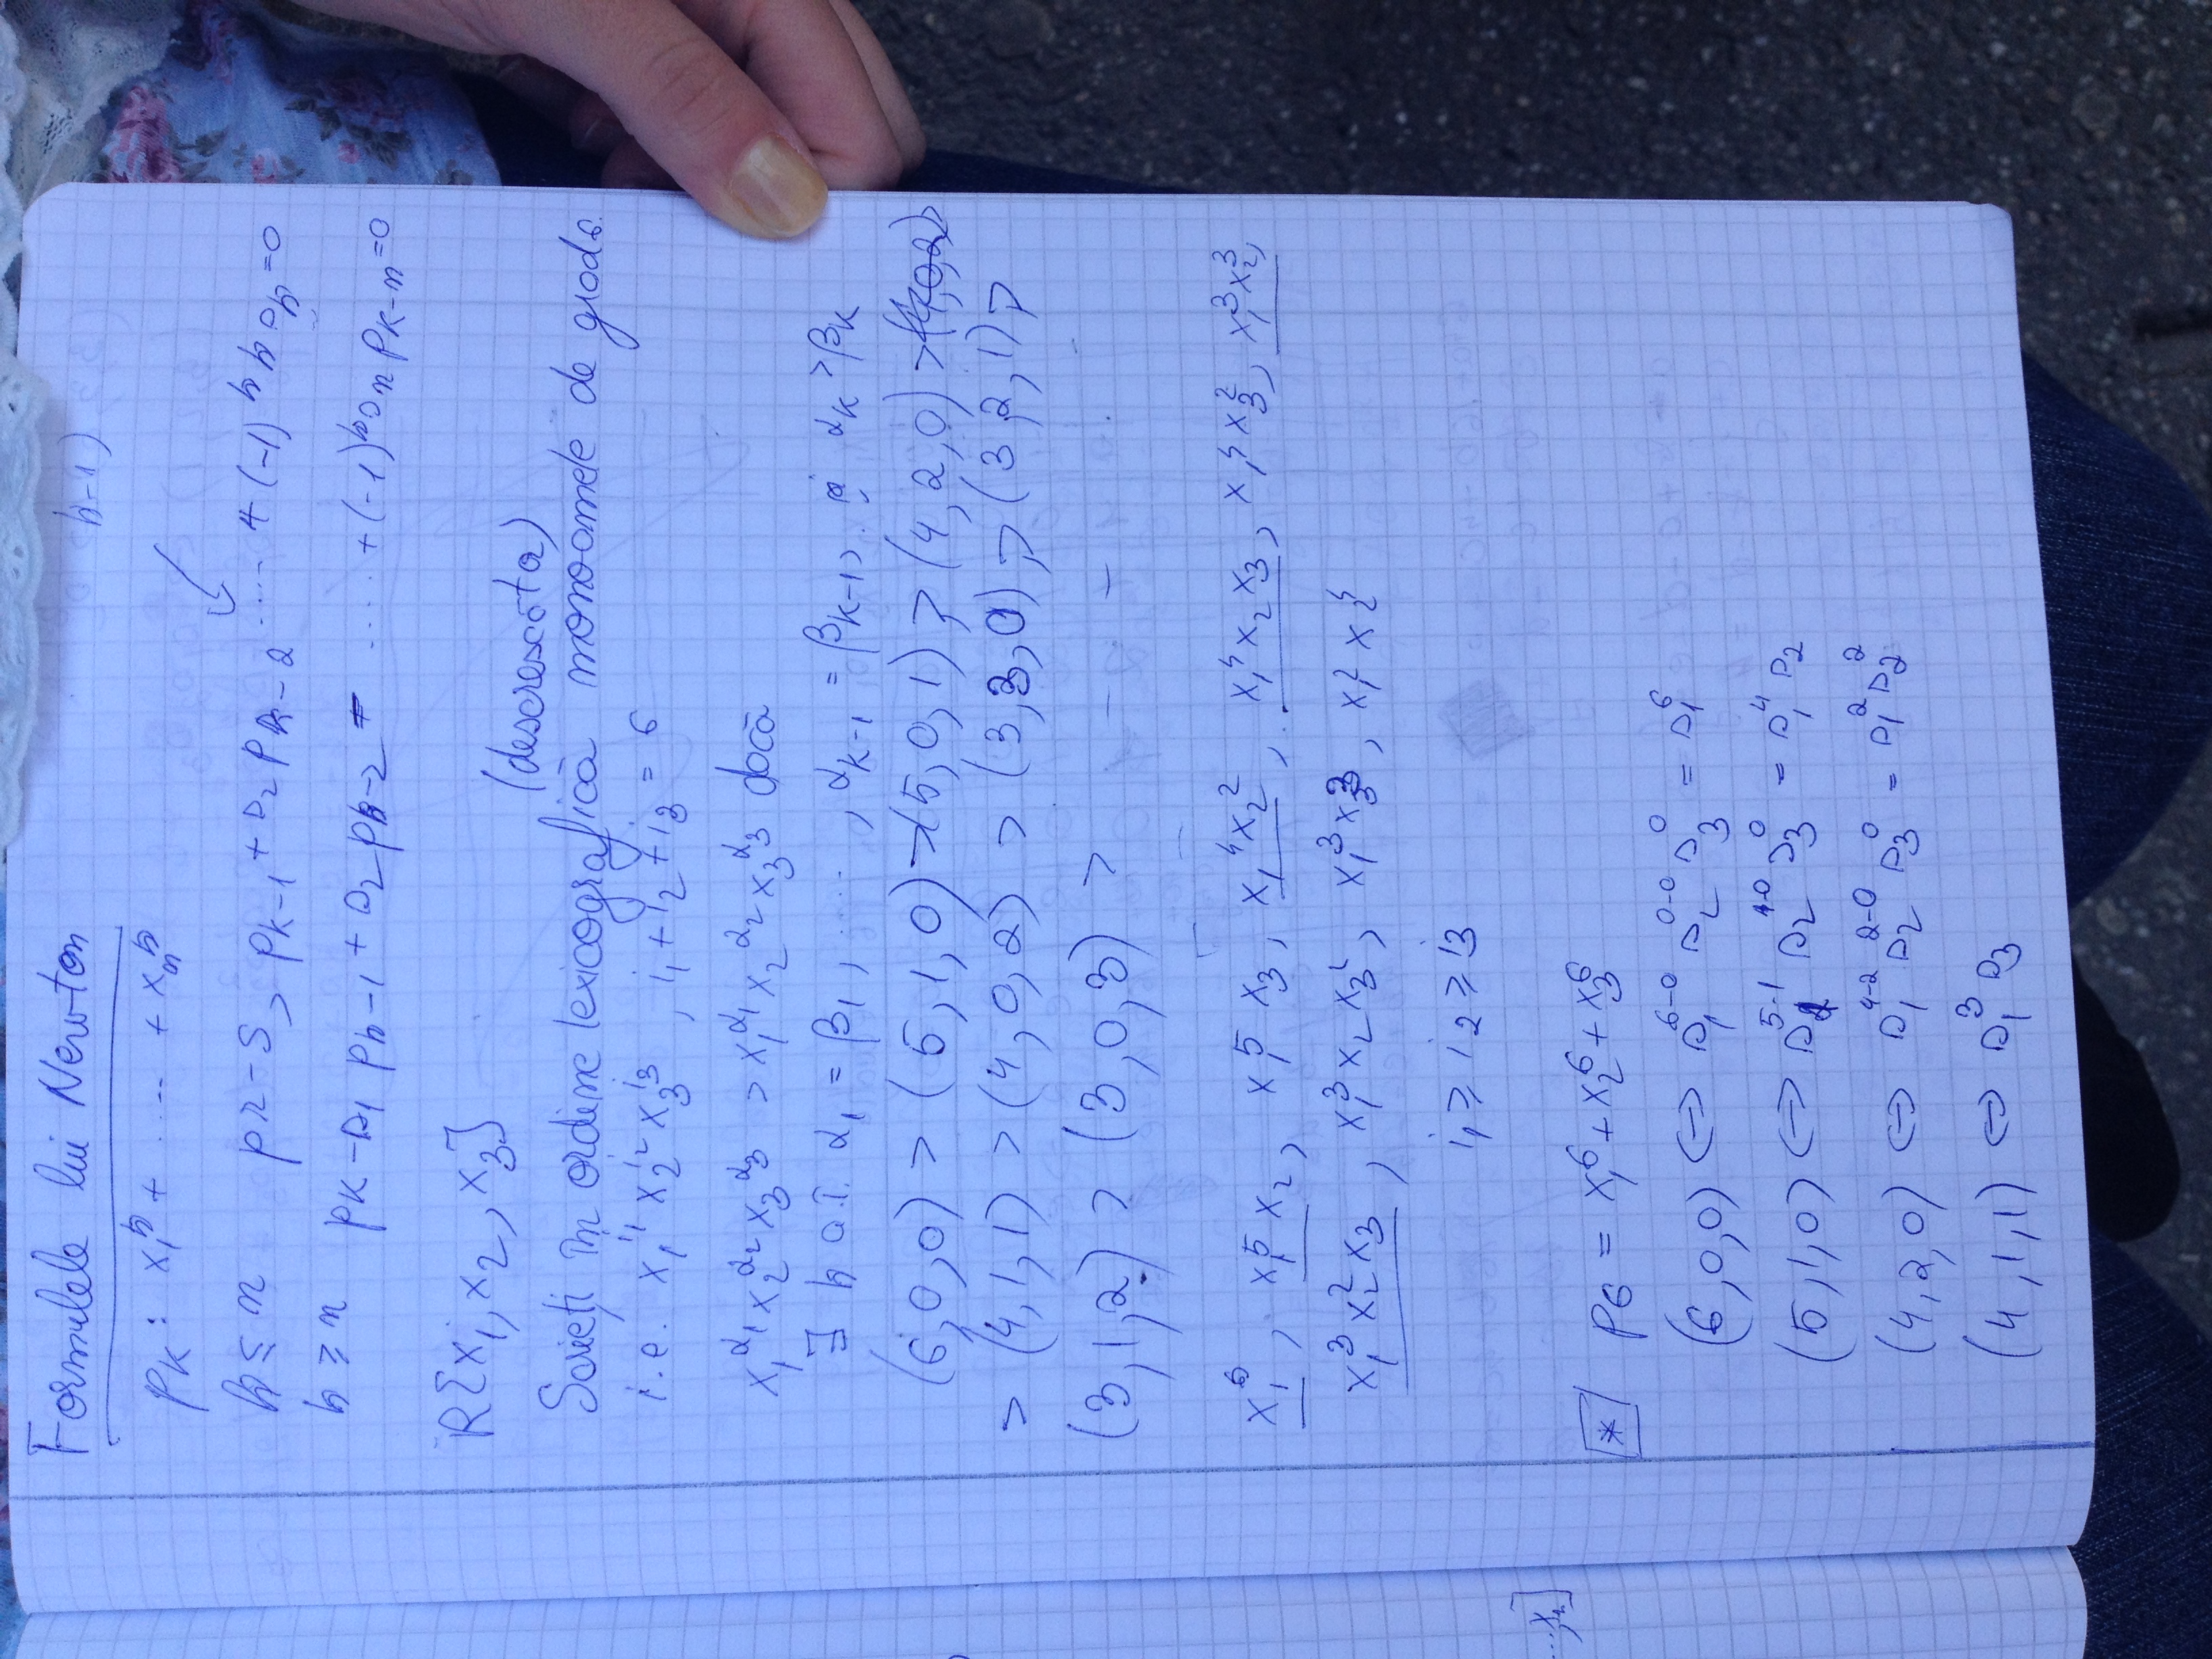 Formulele lui Newton
k-1)
p_k: x_1^k + .... + x_n^k
k ≤ n p_k - s_1 p_{k-1} + s_2 p_{k-2} .... + (-1)^k k s_k = 0
k ≥ n p_k - s_1 p_{k-1} + s_2 p_{k-2} - .... + (-1)^k s_n p_{k-n} = 0
R[x_1, x_2, x_3]
(descrescăta)
Scrieți în ordine lexicografică monoamele de grad 6.
i.e. x_1^{i_1} x_2^{i_2} x_3^{i_3}, i_1 + i_2 + i_3 = 6
x_1^{α_1} x_2^{α_2} x_3^{α_3} > x_1^{α_1} x_2^{α_2} x_3^{α_3} dacă
∃ k a.î. α_1 = β_1, ...., α_{k-1} = β_{k-1}, și α_k > β_k
(6,0,0) > (5,1,0) > (5,0,1) > (4,2,0) > (4,0,2)>
> (4,1,1) > (4,0,2) > (3,3,0) > (3,2,1) >
(3,1,2) > (3,0,3) > - - -
x_1^6, x_1^5 x_2, x_1^5 x_3, x_1^4 x_2^2, x_1^4 x_2 x_3, x_1^4 x_3^2, x_1^3 x_2^3,
x_1^3 x_2^2 x_3, x_1^3 x_2 x_3^2, x_1^3 x_3^3, x_1^2 x_2^4
i_1 ≥ i_2 ≥ i_3
...,x_n]
* p_6 = x_1^6 + x_2^6 + x_3^6
(6,0,0) ↔ s_1^{6-0} s_2^{0-0} s_3^0 = s_1^6
(5,1,0) ↔ s_1^{5-1} s_2^{1-0} s_3^0 = s_1^4 s_2
(4,2,0) ↔ s_1^{4-2} s_2^{2-0} s_3^0 = s_1^2 s_2^2
(4,1,1) ↔ s_1^3 s_3